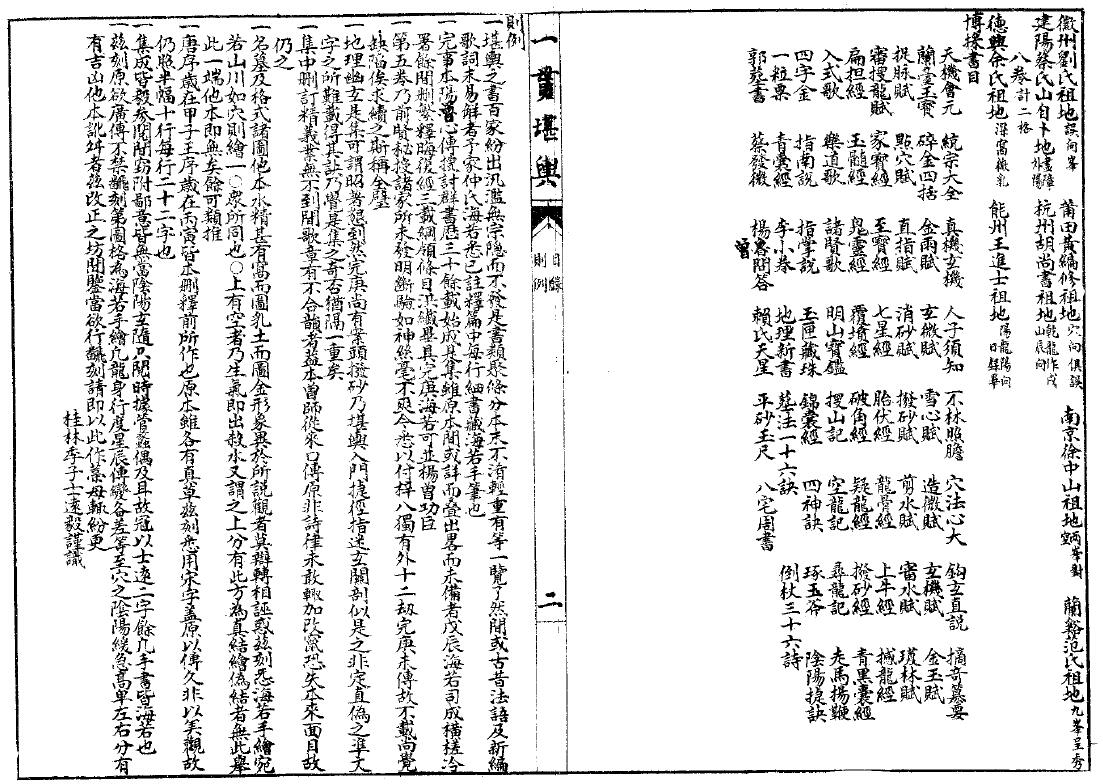 徽州劉氏祖地誤向峯 莆田黄編修祖地穴向俱誤 南京徐中山祖地兩峯對 蘭谿范氏祖地九峯呈秀
建陽蔡氏山勺卜地 杭州胡尚書祖地乾龍作戌山辰向
八卷計二格
德興余氏祖地深窩橫乳 能州王進士祖地陽龍陽向 目錄畢
博採書目
天機會元 統宗大全 真機玄機 人子須知 不林照膽 穴法心大 鈎玄直説 摘奇纂要
蘭臺玉寶 碎金四括 金雨賦 玄微賦 雪心賦 造微賦 玄機賦 金玉賦
捉脉賦 點穴賦 直指賦 消砂賦 撥砂賦 剪水賦 審水賦 瓊林賦
審捜龍賦 家寶經 至寶經 七星經 胎伏經 龍骨經 上牛經 撼龍經
扁担經 玉髓經 鬼靈經 覆墳經 破角經 疑龍經 撥砂經 青黑囊經
入式歌 樂道歌 諸賢歌 明山寶鑑 捜山記 空龍記 尋龍記 走馬揚鞭
四字金 指南説 指掌説 玉匣藏珠 錦囊經 四神訣 琢玉斧 陰陽捷訣
一粒粟 青囊經 李小卷 地理新書 葬法一十六訣 倒杖三十六詩
郭葬書 蔡發微 楊曾問答 賴氏天星 平砂玉尺 八宅周書
一貫堪輿
目録
則例
二
則例
一堪輿之書百家紛出汎濫無宗隐而不發是書類聚條分本末不淆輕重有等一覽了然間或古昔法語及新編
歌詞未易解者予家仲氏海若悉已註釋篇中每行細書藏海若手筆也
一完事本陽曾心傳捜討群書歷三十餘載始成是集雖原本間或詳而疊出畧而未備者戊辰海若司成橫槎冷
署餘閒刪繁釋晦復經三載綱領條目洪纎畢具完庚海若可並楊曾功臣
一第五卷乃前賢秘授諸家所未發明斷驗如神絲毫不爽今悉以付梓八獨有外十二劫完庚未傳故不載尚覺
缺陷俟求續之斯稱全璧
一地理幽玄是集可謂昭著懇到然完庚尚有業頭撥砂乃堪輿入門捷徑指迷玄關剖似是之非定真偽之凖文
字之所難載得其訣乃嘗是集之奇否猶隔一重矣
一集中刪訂精義業無不到間歌章有不合韻者葢本曾師從來口傳原非詩律未敢輙加改竄恐失本來面目故
仍之
一名墓及格式諸圖他本水精甚有窩而圖乳土而圖金形象異於所説觀者莫辯轉相誣惑兹刻悉海若手繪宛
若山川如穴則繪一〇衆所同也〇上有空者乃生氣即出殺水又謂之上分有此方為真結繪偽結者無此舉
此一端他本即無矣餘可類推
一唐序歲在甲子王序歲在丙寅皆本刪釋前所作也原本雖各有真草兹刻悉用宋字盖原以傳久非以美觀故
仍照半幅十行每行二十二字也
一集成皆毅參閲間窃附鄙意皆無當陰陽玄隨只閒時據管蠡偶及耳故冠以士遠二字餘凡手書皆海若也
一兹刻原欲廣傳不禁翻刻第圖格為海若手繪凡龍身行度星辰傳變各差等至穴之陰陽緩急高卑左右分有
有吉凶他本訛舛者兹改正之坊間鑒當欲行翻刻請即以此作藁母輙紛更
桂林李子士遠毅謹識